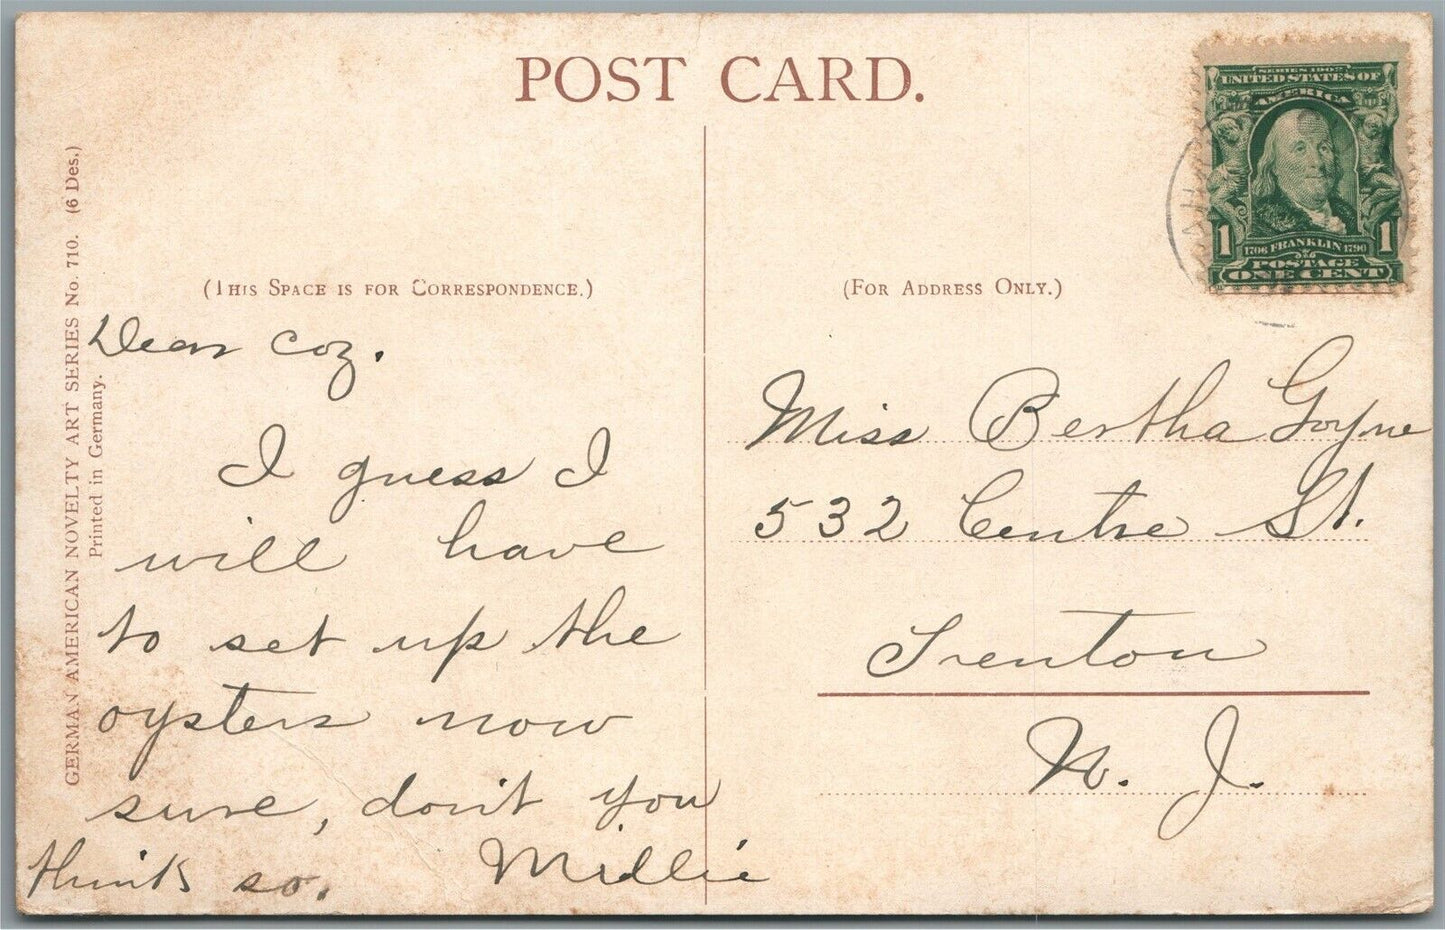 POST CARD.
GERMAN AMERICAN NOVELTY ART SERIES No. 710. (6 Des.)
Printed in Germany.
(THIS SPACE IS FOR CORRESPONDENCE.)
Dear Coz.
I guess I
will have
to set up the
oysters now
sure, don't you
think so. Millie
(FOR ADDRESS ONLY.)
Miss Bertha Goyne
532 Centre St.
Trenton
N. J.
SERIES 1902
UNITED STATES OF
AMERICA
1 1706 FRANKLIN 1790 1
POSTAGE
ONE CENT